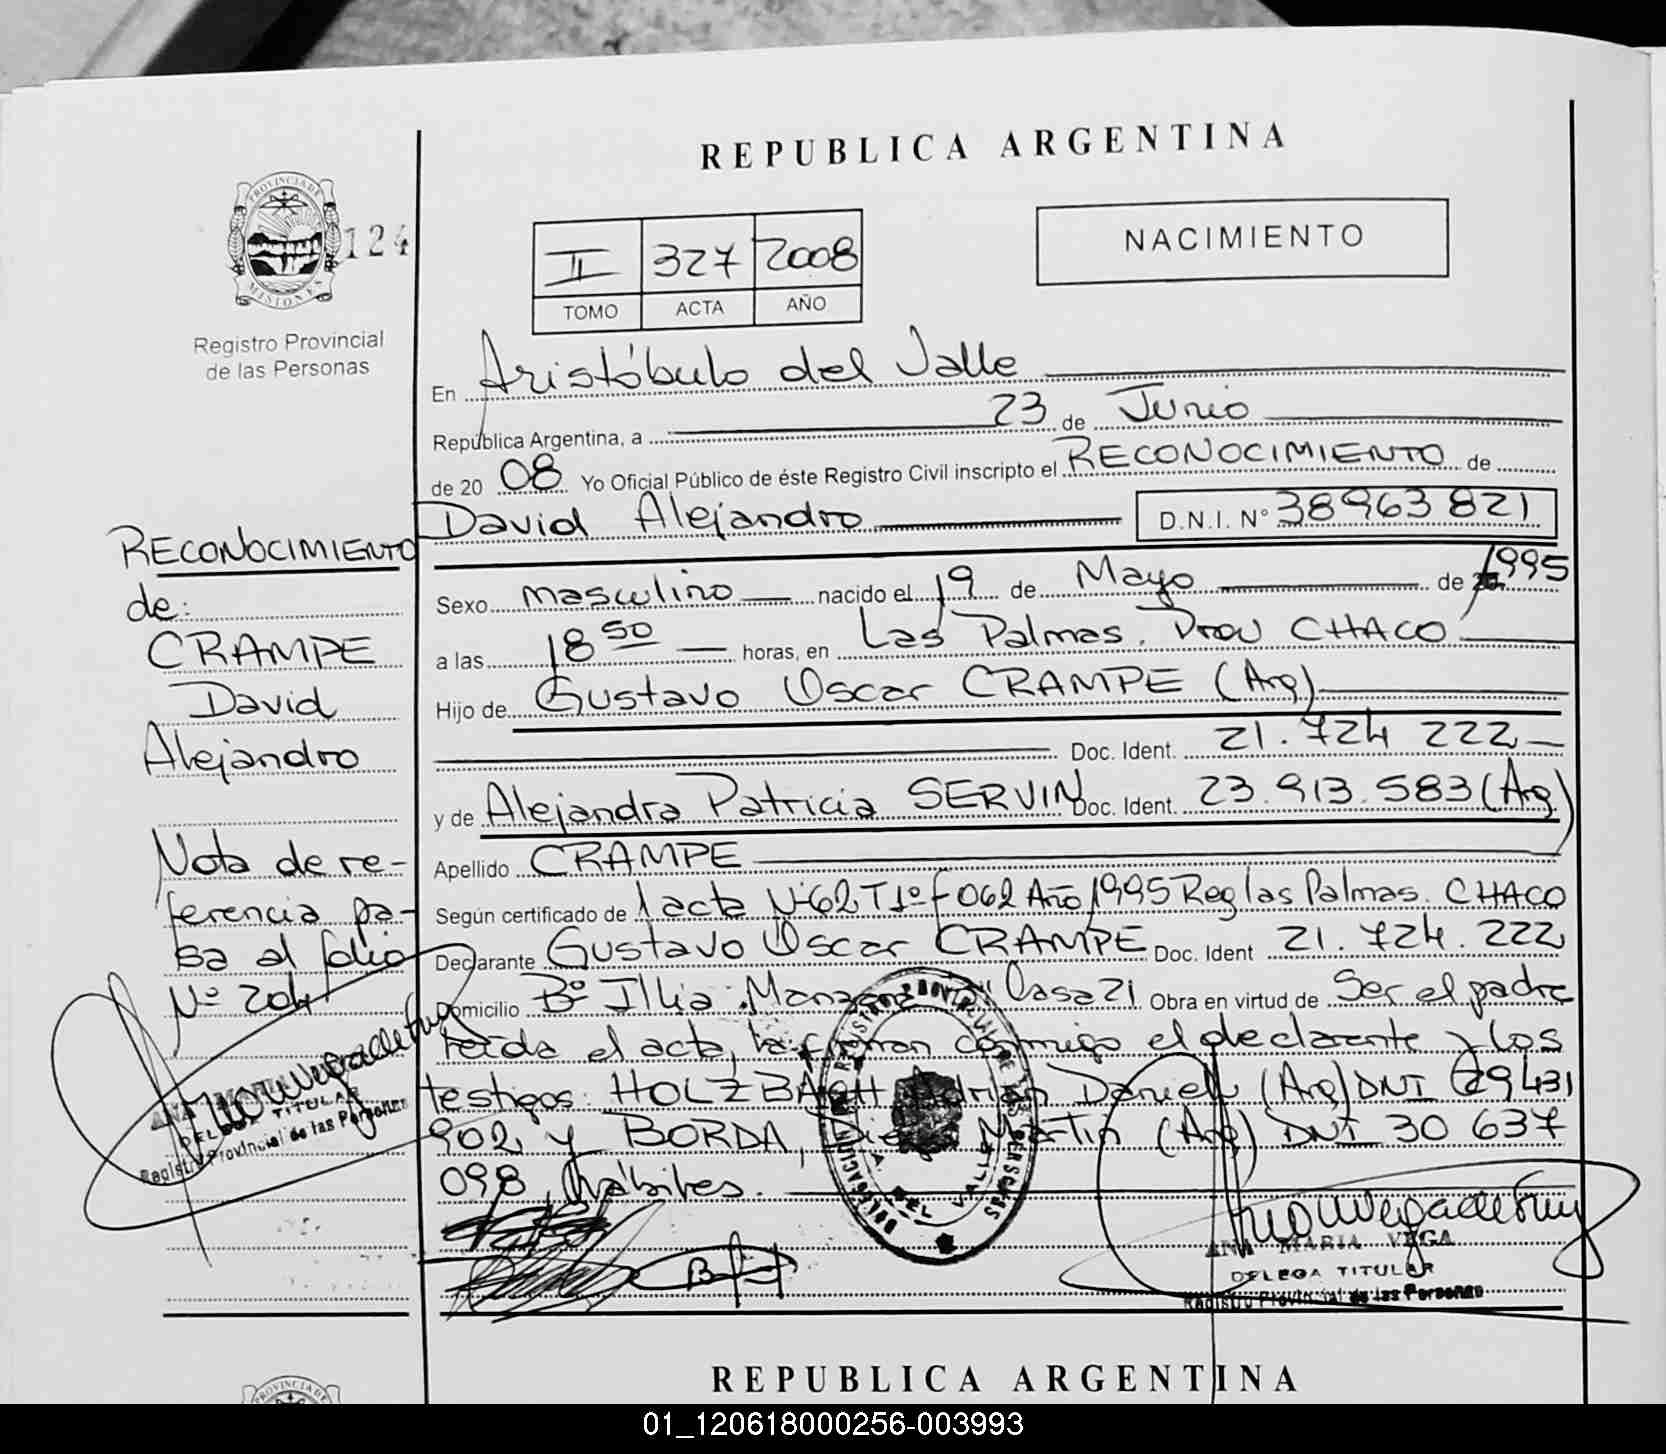 REPUBLICA ARGENTINA
PROVINCIA DE
MISIONES
124
Registro Provincial
de las Personas
II 327 2008
TOMO ACTA AÑO
NACIMIENTO
En Aristóbulo del Valle
República Argentina, a 23 de Junio
de 20 08 Yo Oficial Público de éste Registro Civil inscripto el RECONOCIMIENTO de
David Alejandro D.N.I. N° 38963821
Sexo masculino nacido el 19 de Mayo de 1995
a las 18 50 horas, en Las Palmas. Prov CHACO
Hijo de Gustavo Oscar CRAMPE (Arg)
Doc. Ident. 21.724 222
y de Alejandra Patricia SERVIN Doc. Ident. 23.913.583 (Arg)
Apellido CRAMPE
Según certificado de 1 acta N°62 T1° f° 062 Año 1995 Reg las Palmas. CHACO
Declarante Gustavo Oscar CRAMPE Doc. Ident 21.724.222
Domicilio B° Illia Manzana Casa 21 Obra en virtud de Ser el padre
leída el acta, la firman conmigo el declarante y los
testigos: Adrián Daniel (Arg) DNI 29431
902 y BORDA, Diego Martin (Arg) DNI 30 637
098, hábiles.
RECONOCIMIENTO
de:
CRAMPE
David
Alejandro
Nota de re-
ferencia pa-
sa al folio
N° 204
ANA MARIA VEGA
DELEGA TITULAR
Registro Provincial de las Personas
ANA MARIA VEGA
DELEGA TITULAR
Registro Provincial de las Personas
REPUBLICA ARGENTINA
PROVINCIA DE
01_120618000256-003993